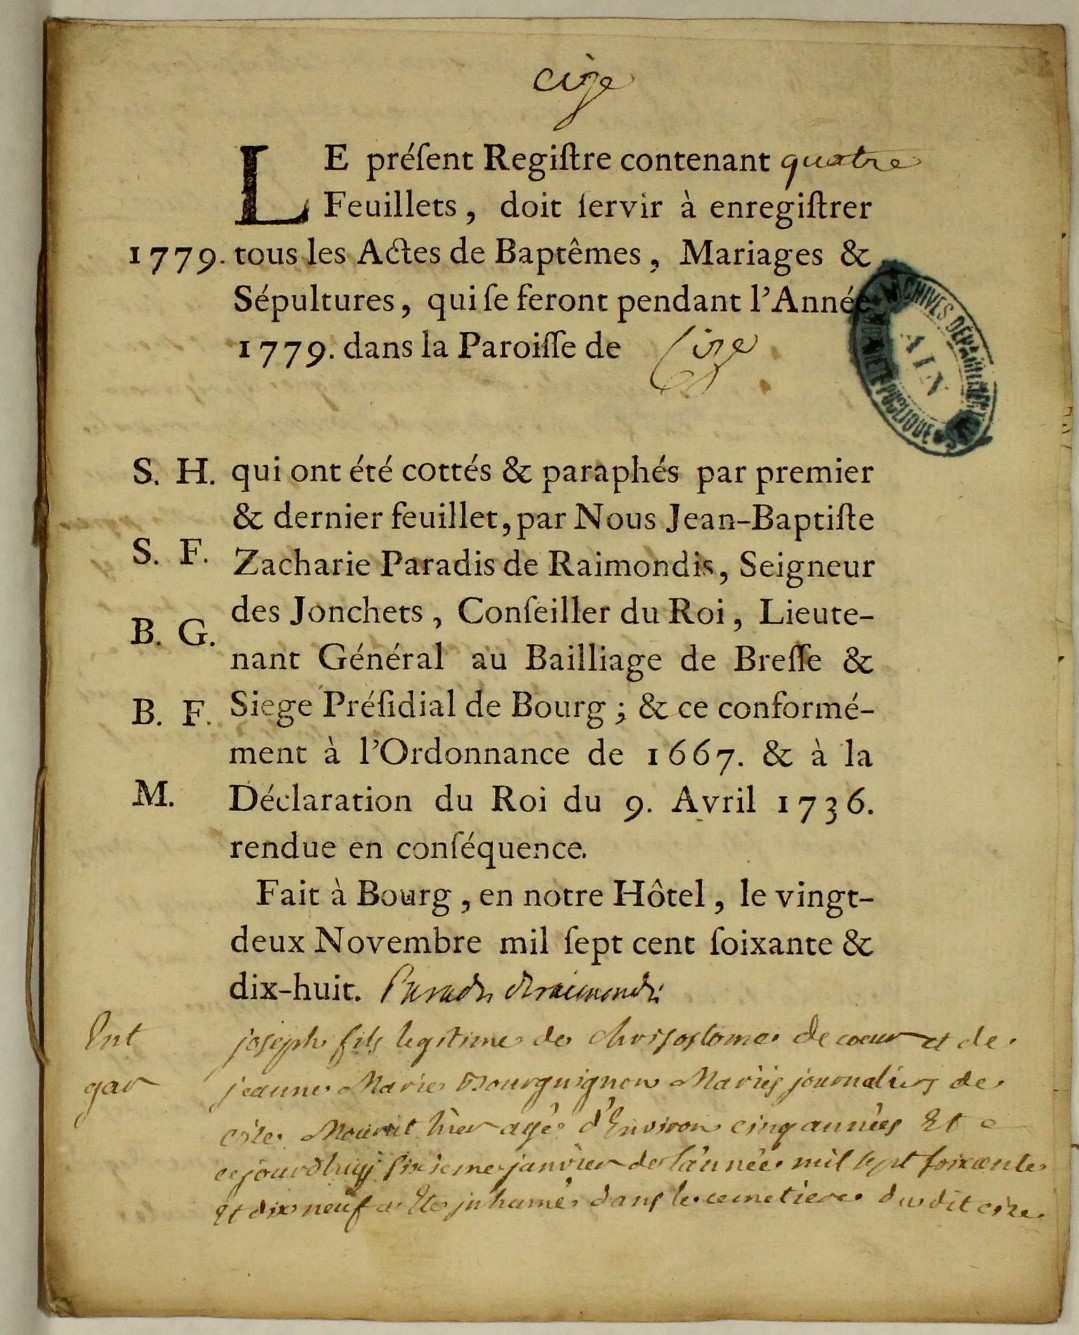 cize
LE préſent Regiſtre contenant quatre
Feuillets, doit ſervir à enregiſtrer
1779. tous les Actes de Baptêmes, Mariages &
Sépultures, qui ſe feront pendant l'Année
1779. dans la Paroiſſe de Cize
ARCHIVES DÉPARTEMENTALES
AIN
PROPRIÉTÉ PUBLIQUE
S. H. qui ont été cottés & paraphés par premier
& dernier feuillet, par Nous Jean-Baptiſte
S. F. Zacharie Paradis de Raimondis, Seigneur
des Jonchets, Conſeiller du Roi, Lieute-
B. G. nant Général au Bailliage de Breſſe &
B. F. Siege Préſidial de Bourg; & ce conformé-
ment à l'Ordonnance de 1667. & à la
M. Déclaration du Roi du 9. Avril 1736.
rendue en conſéquence.
Fait à Bourg, en notre Hôtel, le vingt-
deux Novembre mil ſept cent ſoixante &
dix-huit. Paradis deraimondis
Ent joseph fils legitime de chrisostome decoeur et de
gar jeanne Marie Bourguignon Mariés journaliers de
cize Mourut hier agé d'Environ cinq années Et
cejourdhuy sixieme janvier de l'année mil sept soixante
et dix neuf a Ete inhumé dans le cemetiere du dit cize